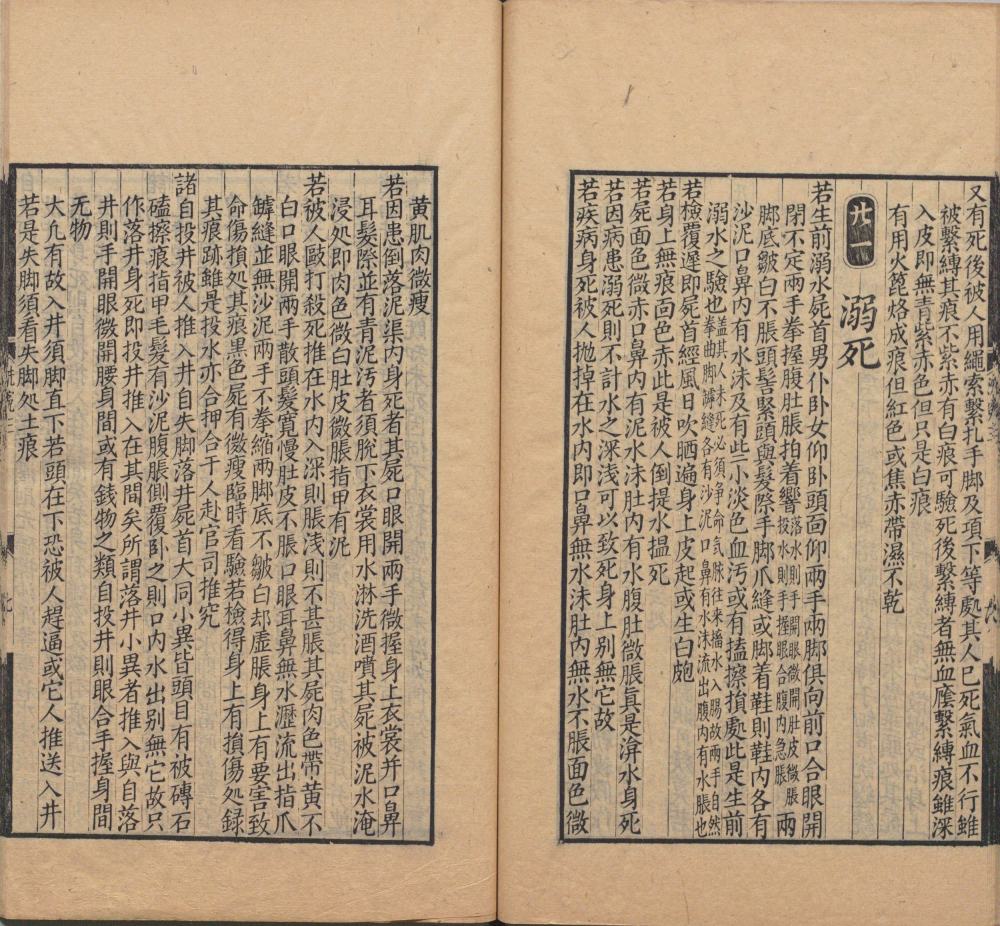 又有死後被人用繩索繫扎手脚及項下等處其人已死氣血不行雖
被繫縛其痕不紫赤有白痕可驗死後繫縛者無血廕繫縛痕雖深
入皮即無青紫赤色但只是白痕
有用火篦烙成痕但紅色或焦赤帶濕不乾
廿一 溺死
若生前溺水屍首男仆卧女仰卧頭面仰兩手兩脚俱向前口合眼開
閉不定兩手拳握腹肚脹拍着響落水則手開眼微開肚皮微脹投水則手握眼合腹内急脹兩
脚底皺白不脹頭髻緊頭與髮際手脚爪縫或脚着鞋則鞋内各有
沙泥口鼻内有水沫及有些小淡色血汚或有搕擦損處此是生前
溺水之驗也盖其人未死必須争命氣脉往來搐水入腸故兩手自然拳曲脚罅縫各有沙泥口鼻有水沫流出腹内有水脹也
若檢覆遲即屍首經風日吹晒遍身上皮起或生白皰
若身上無痕面色赤此是被人倒提水揾死
若屍面色微赤口鼻内有泥水沫肚内有水腹肚微脹真是渰水身死
若因病患溺死則不計水之深浅可以致死身上别無它故
若疾病身死被人抛掉在水内即口鼻無水沫肚内無水不脹面色微
黄肌肉微瘦
若因患倒落泥渠内身死者其屍口眼開兩手微握身上衣裳并口鼻
耳髮際並有青泥汚者須脱下衣裳用水淋洗酒噴其屍被泥水淹
浸処即肉色微白肚皮微脹指甲有泥
若被人毆打殺死推在水内入深則脹浅則不甚脹其屍肉色帶黄不
白口眼開兩手散頭髮寛慢肚皮不脹口眼耳鼻無水瀝流出指爪
罅縫並無沙泥兩手不拳縮兩脚底不皺白却虚脹身上有要害致
命傷損処其痕黒色屍有微瘦臨時看驗若檢得身上有損傷処録
其痕跡雖是投水亦合押合干人赴官司推究
諸自投井被人推入井自失脚落井屍首大同小異皆頭目有被磚石
磕擦痕指甲毛髮有沙泥腹脹側覆卧之則口内水出别無它故只
作落井身死即投井推入在其間矣所謂落井小異者推入與自落
井則手開眼微開腰身間或有錢物之類自投井則眼合手握身間
无物
大凢有故入井須脚直下若頭在下恐被人趕逼或它人推送入井
若是失脚須看失脚処土痕